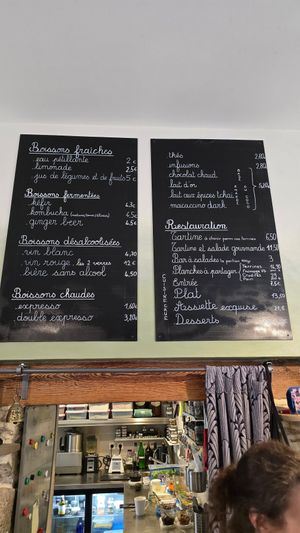 Boissons fraîches
eau pétillante 2€
limonade 2.5€
jus de légumes et de fruits 5€
Boissons fermentées
kéfir 4.3€
kombucha 4.5€
ginger beer 4.5€
Boissons désalcoolisées
vin blanc 4,70
vin rouge les 2 verres 12€
bière sans alcool 4,50
Boissons chaudes
expresso 1,60€
double expresso 3,20€
thés 2,80
infusions 2,80
chocolat chaud
lait d'or
lait aux épices tchaï
macaccino dark
Restauration
Tartine 6,50
Tartine et salade gourmande 11,50
Bar à salades 3
Planches à partager
Entrée 7.5€
Plat
Assiette exquise
Desserts